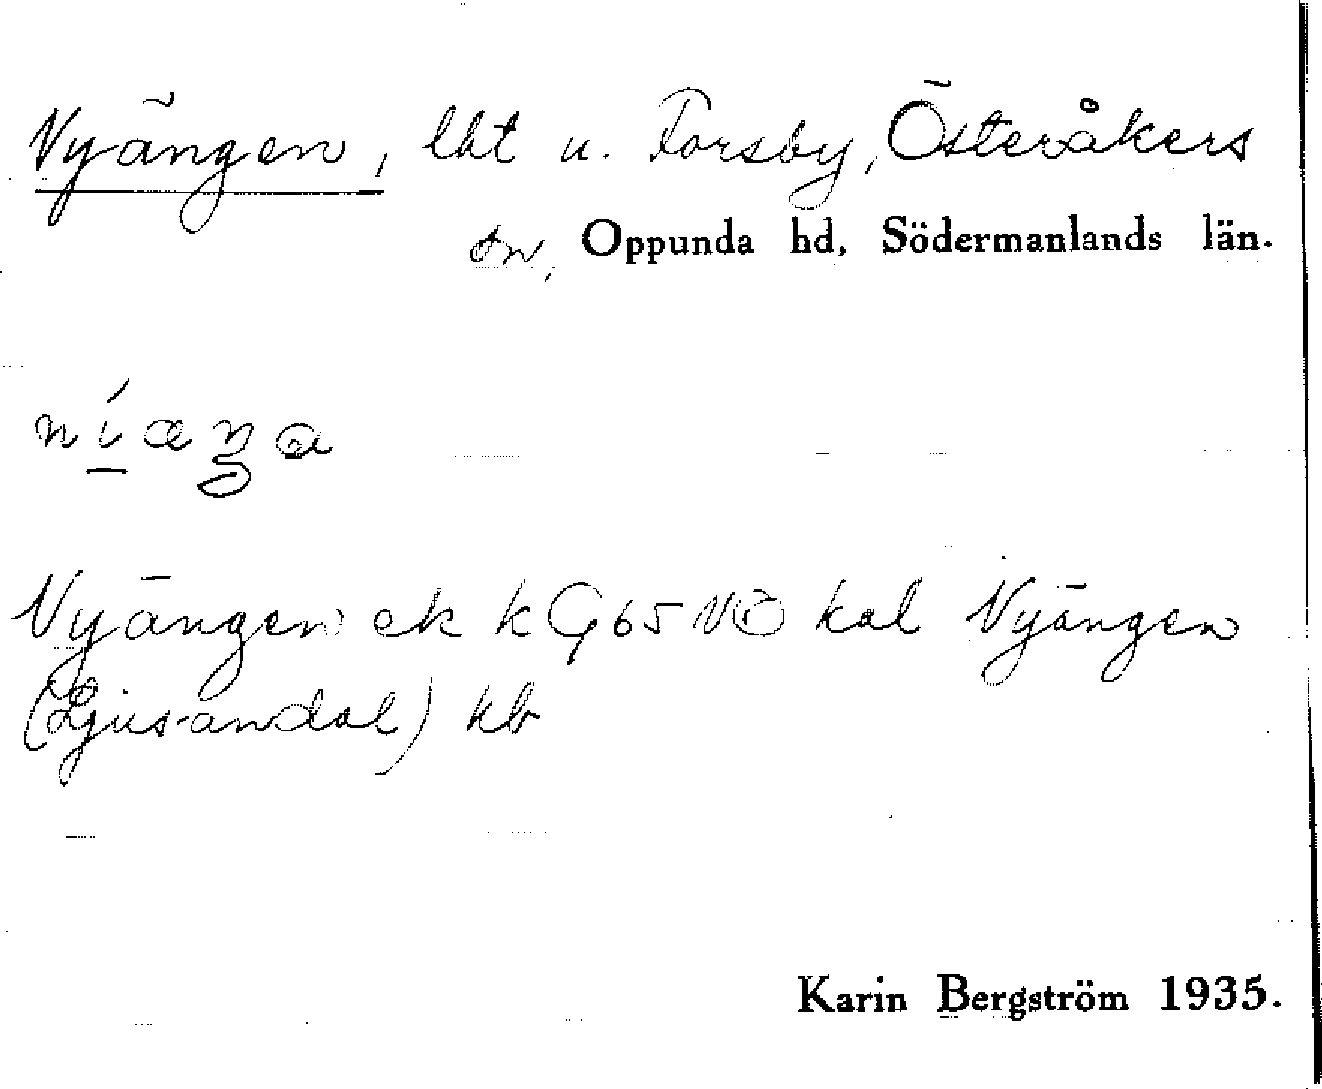 Nyängen, lht u. Forsby, Österåkers
sn, Oppunda hd, Södermanlands län.
níæŋa
Nyängen ek k G65 NÖ kal Nyängen
(Ljusandal) kb
Karin Bergström 1935.